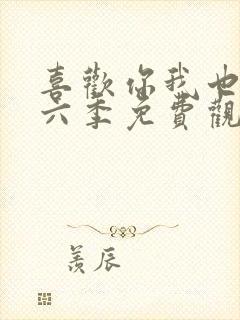 喜歡你我也
六季免費觀
羨辰